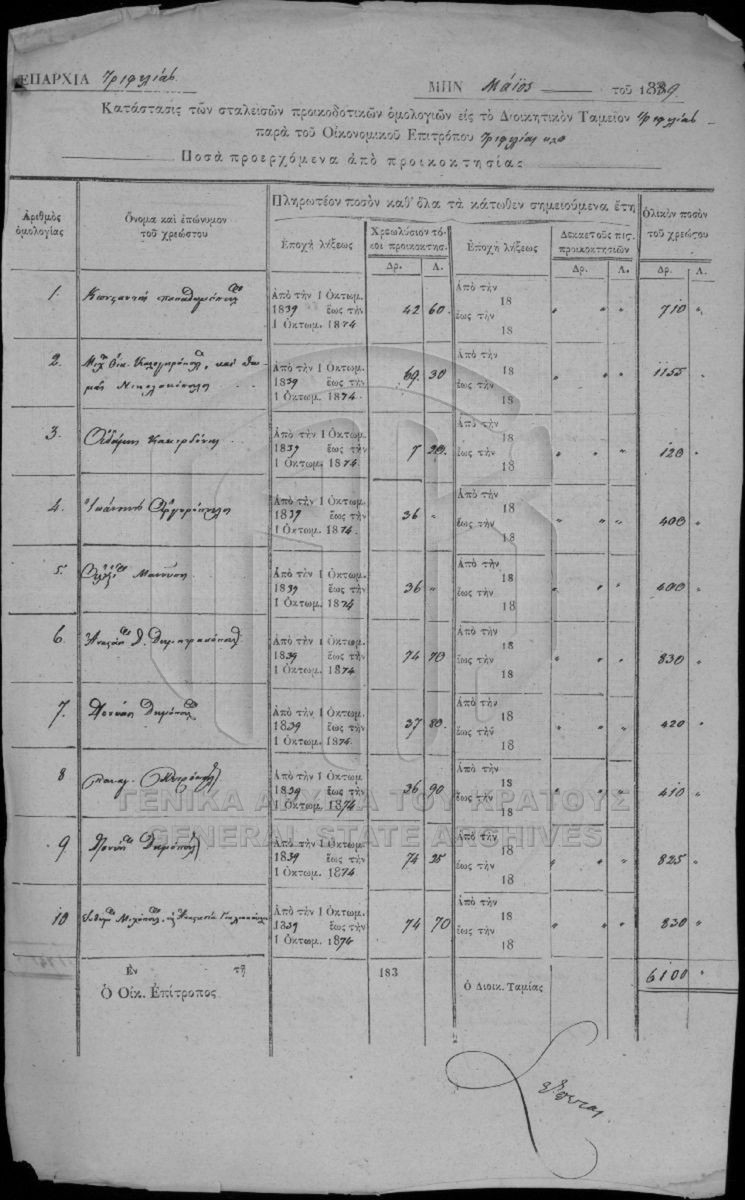 ΕΠΑΡΧΙΑ Τριφυλίας ΜΗΝ Μάϊος τοῦ 1839
Κατάστασις τῶν σταλεισῶν προικοδοτικῶν ὁμολογιῶν εἰς τὸ Διοικητικὸν Ταμεῖον Τριφυλίας
παρὰ τοῦ Οἰκονομικοῦ Ἐπιτρόπου Τριφυλίας
Ποσὰ προερχόμενα ἀπὸ προικοκτησίας
Ἀριθμὸς ὁμολογίας
Ὄνομα καὶ ἐπώνυμον τοῦ χρεώστου
Πληρωτέον ποσὸν καθ' ὅλα τὰ κάτωθεν σημειούμενα ἔτη
Ὁλικὸν ποσὸν τοῦ χρεώστου
Ἐποχὴ λήξεως
Χρεωλύσιον τόκοι προικοκτησ.
Ἐποχὴ λήξεως
Δεκαετοῦς πις. προικοκτησιῶν
Δρ. Λ. Δρ. Λ. Δρ. Λ.
1. Ἀπὸ τὴν 1 Ὀκτωμ. 1839 ἕως τὴν 1 Ὀκτωμ. 1874 42 60 Ἀπὸ τὴν 18 ἕως τὴν 18 " " " 710 "
2. Ἀπὸ τὴν 1 Ὀκτωμ. 1839 ἕως τὴν 1 Ὀκτωμ. 1874 69 30 Ἀπὸ τὴν 18 ἕως τὴν 18 " " " 1155 "
3. Ἀπὸ τὴν 1 Ὀκτωμ. 1839 ἕως τὴν 1 Ὀκτωμ. 1874 7 20 Ἀπὸ τὴν 18 ἕως τὴν 18 " " " 120 "
4. Ἰωάννης Ἀργυρόπουλος Ἀπὸ τὴν 1 Ὀκτωμ. 1839 ἕως τὴν 1 Ὀκτωμ. 1874 36 " Ἀπὸ τὴν 18 ἕως τὴν 18 " " " 400 "
5. Ἀπὸ τὴν 1 Ὀκτωμ. 1839 ἕως τὴν 1 Ὀκτωμ. 1874 36 " Ἀπὸ τὴν 18 ἕως τὴν 18 " " " 400 "
6. Ἀπὸ τὴν 1 Ὀκτωμ. 1839 ἕως τὴν 1 Ὀκτωμ. 1874 74 70 Ἀπὸ τὴν 18 ἕως τὴν 18 " " " 830 "
7. Ἀπὸ τὴν 1 Ὀκτωμ. 1839 ἕως τὴν 1 Ὀκτωμ. 1874 37 80 Ἀπὸ τὴν 18 ἕως τὴν 18 " " " 420 "
8 Ἀπὸ τὴν 1 Ὀκτωμ 1839 ἕως τὴν 1 Ὀκτωμ. 1874 36 90 Ἀπὸ τὴν 18 ἕως τὴν 18 " " " 410 "
9 Ἀπὸ τὴν 1 Ὀκτωμ. 1839 ἕως τὴν 1 Ὀκτωμ. 1874 74 25 Ἀπὸ τὴν 18 ἕως τὴν 18 " " " 825 "
10 Ἀπὸ τὴν 1 Ὀκτωμ. 1839 ἕως τὴν 1 Ὀκτωμ. 1874 74 70 Ἀπὸ τὴν 18 ἕως τὴν 18 " " " 830 "
Ἐν τῇ 183 6100 "
Ὁ Οἰκ. Ἐπίτροπος Ὁ Διοικ. Ταμίας
ΓΕΝΙΚΑ ΑΡΧΕΙΑ ΤΟΥ ΚΡΑΤΟΥΣ
GENERAL STATE ARCHIVES